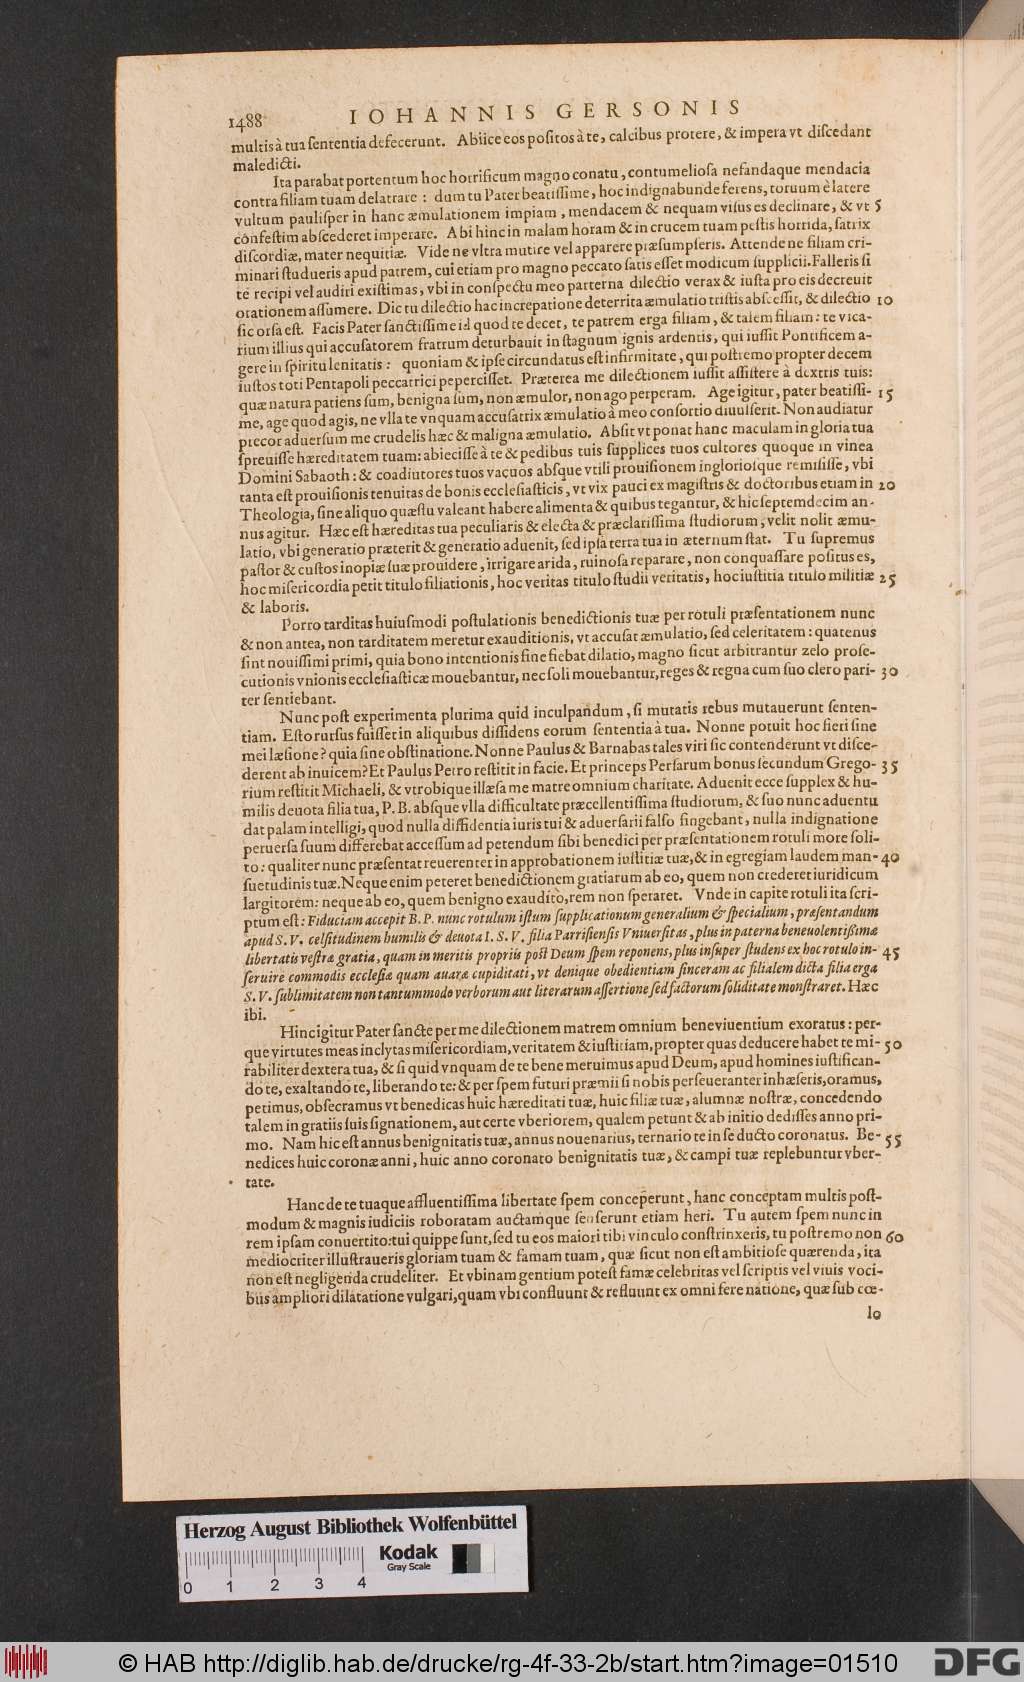 1488 IOHANNIS GERSONIS
multis à tua sententia defecerunt. Abiice eos positos à te, calcibus protere, & impera vt discedant
maledicti.
Ita parabat portentum hoc horrificum magno conatu, contumeliosa nefandaque mendacia
contra filiam tuam delatrare : dum tu Pater beatissime, hoc indignabunde ferens, toruum è latere
vultum paulisper in hanc æmulationem impiam, mendacem & nequam visus es declinare, & vt 5
confestim abscederet imperare. Abi hinc in malam horam & in crucem tuam pestis horrida, satrix
discordiæ, mater nequitiæ. Vide ne vltra mutire vel apparere præsumpseris. Attende ne filiam cri-
minari studueris apud patrem, cui etiam pro magno peccato satis esset modicum supplicii. Falleris si
te recipi vel audiri existimas, vbi in conspectu meo paterna dilectio verax & iusta pro eis decreuit
orationem assumere. Dic tu dilectio hac increpatione deterrita æmulatio tristis abscessit, & dilectio 10
sic orsa est. Facis Pater sanctissime id quod te decet, te patrem erga filiam, & talem filiam: te vica-
rium illius qui accusatorem fratrum deturbauit in stagnum ignis ardentis, qui iussit Pontificem a-
gere in spiritu lenitatis : quoniam & ipse circundatus est infirmitate, qui postremo propter decem
iustos toti Pentapoli peccatrici pepercisset. Præterea me dilectionem iussit assistere à dextris tuis:
quæ natura patiens sum, benigna sum, non æmulor, non ago perperam. Age igitur, pater beatissi- 15
me, age quod agis, ne vlla te vnquam accusatrix æmulatio à meo consortio diuulserit. Non audiatur
precor aduersum me crudelis hæc & maligna æmulatio. Absit vt ponat hanc maculam in gloria tua
spreuisse hæreditatem tuam: abiecisse à te & pedibus tuis supplices tuos cultores quoque in vinea
Domini Sabaoth: & coadiutores tuos vacuos absque vtili prouisionem ingloriosque remisisse, vbi
tanta est prouisionis tenuitas de bonis ecclesiasticis, vt vix pauci ex magistris & doctoribus etiam in 20
Theologia, sine aliquo quæstu valeant habere alimenta & quibus tegantur, & hic septemdecim an-
nus agitur. Hæc est hæreditas tua peculiaris & electa & præclarissima studiorum, velit nolit æmu-
latio, vbi generatio præterit & generatio aduenit, sed ipsa terra tua in æternum stat. Tu supremus
pastor & custos inopiæ suæ prouidere, irrigare arida, ruinosa reparare, non conquassare positus es,
hoc misericordia petit titulo filiationis, hoc veritas titulo studii veritatis, hoc iustitia titulo militiæ 25
& laboris.
Porro tarditas huiusmodi postulationis benedictionis tuæ per rotuli præsentationem nunc
& non antea, non tarditatem meretur exauditionis, vt accusat æmulatio, sed celeritatem : quatenus
sint nouissimi primi, quia bono intentionis fine fiebat dilatio, magno sicut arbitrantur zelo prose-
cutionis vnionis ecclesiasticæ mouebantur, nec soli mouebantur, reges & regna cum suo clero pari- 30
ter sentiebant.
Nunc post experimenta plurima quid inculpandum, si mutatis rebus mutauerunt senten-
tiam. Esto rursus fuisset in aliquibus dissidens eorum sententia à tua. Nonne potuit hoc fieri sine
mei læsione? quia sine obstinatione. Nonne Paulus & Barnabas tales viri sic contenderunt vt disce-
derent ab inuicem? Et Paulus Petro restitit in facie. Et princeps Persarum bonus secundum Grego- 35
rium restitit Michaeli, & vtrobique illæsa me matre omnium charitate. Aduenit ecce supplex & hu-
milis deuota filia tua, P. B. absque vlla difficultate præcellentissima studiorum, & suo nunc aduentu
dat palam intelligi, quod nulla diffidentia iuris tui & aduersarii falso fingebant, nulla indignatione
peruersa suum differebat accessum ad petendum sibi benedici per præsentationem rotuli more soli-
to : qualiter nunc præsentat reuerenter in approbationem iustitiæ tuæ, & in egregiam laudem man- 40
suetudinis tuæ. Neque enim peteret benedictionem gratiarum ab eo, quem non crederet iuridicum
largitorem: neque ab eo, quem benigno exaudito, rem non speraret. Vnde in capite rotuli ita scri-
ptum est : Fiduciam accepit B. P. nunc rotulum istum supplicationum generalium & specialium, præsentandum
apud S. V. celsitudinem humilis & deuota I. S. V. filia Parrisiensis Vniuersitas, plus in paterna beneuolentißima
libertatis vestræ gratia, quam in meritis propriis post Deum spem reponens, plus insuper studens ex hoc rotulo in- 45
seruire commodis ecclesiæ quam auaræ cupiditati, vt denique obedientiam sinceram ac filialem dicta filia erga
S. V. sublimitatem non tantummodo verborum aut literarum assertione sed factorum soliditate monstraret. Hæc
ibi.
Hinc igitur Pater sancte per me dilectionem matrem omnium bene viuentium exoratus : per-
que virtutes meas inclytas misericordiam, veritatem & iustitiam, propter quas deducere habet te mi- 50
rabiliter dextera tua, & si quid vnquam de te bene meruimus apud Deum, apud homines iustifican-
do te, exaltando te, liberando te: & per spem futuri præmii si nobis perseueranter inhæseris, oramus,
petimus, obsecramus vt benedicas huic hæreditati tuæ, huic filiæ tuæ, alumnæ nostræ, concedendo
talem in gratiis suis signationem, aut certe vberiorem, qualem petunt & ab initio dedisses anno pri-
mo. Nam hic est annus benignitatis tuæ, annus nouenarius, ternario te in se ducto coronatus. Be- 55
nedices huic coronæ anni, huic anno coronato benignitatis tuæ, & campi tuæ replebuntur vber-
tate.
Hanc de te tuaque affluentissima libertate spem conceperunt, hanc conceptam multis post-
modum & magnis iudiciis roboratam auctamque senserunt etiam heri. Tu autem spem nunc in
rem ipsam conuertito: tui quippe sunt, sed tu eos maiori tibi vinculo constrinxeris, tu postremo non 60
mediocriter illustraueris gloriam tuam & famam tuam, quæ sicut non est ambitiose quærenda, ita
non est negligenda crudeliter. Et vbinam gentium potest famæ celebritas vel scriptis vel viuis voci-
bus ampliori dilatatione vulgari, quam vbi confluunt & refluunt ex omni fere natione, quæ sub cœ-
lo
Herzog August Bibliothek Wolfenbüttel
Kodak
Gray Scale
0 1 2 3 4
© HAB http://diglib.hab.de/drucke/rg-4f-33-2b/start.htm?image=01510
DFG